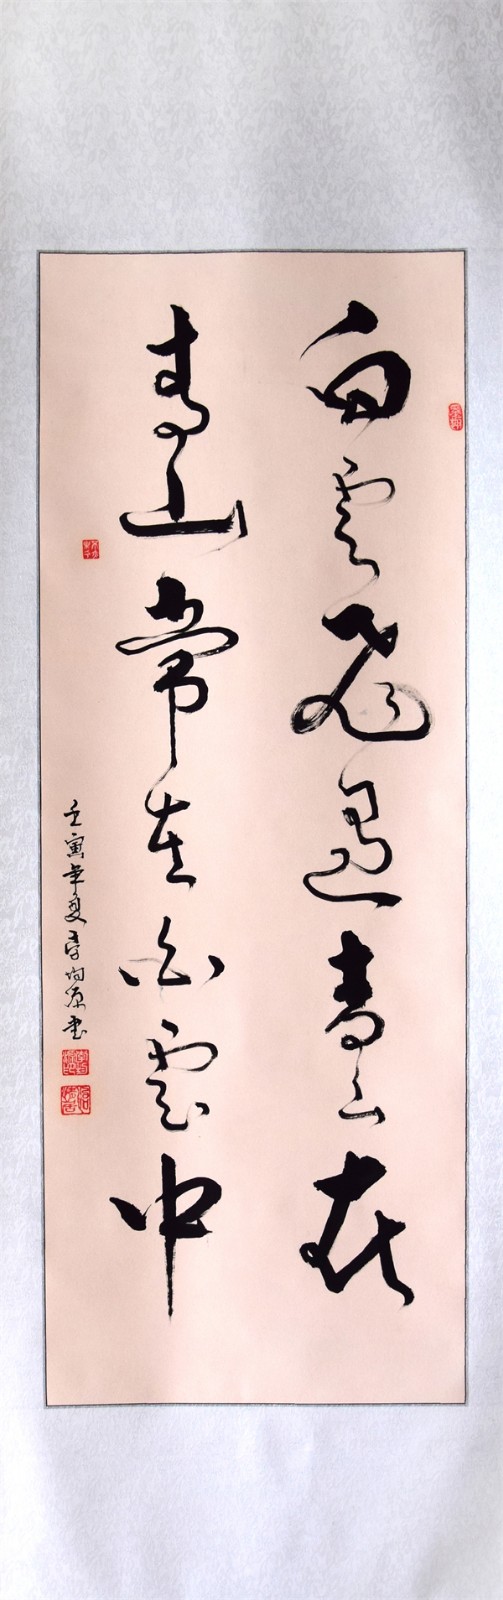 白雲飛過青山在
青山常在白雲中
壬寅年夏李向原書